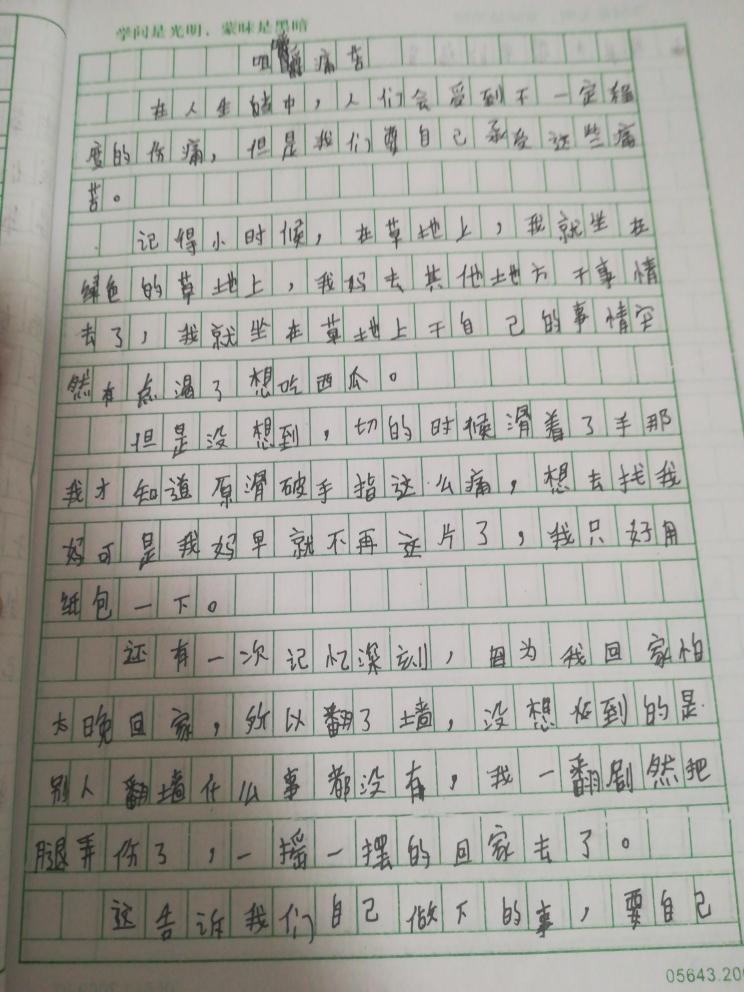 学问是光明，蒙昧是黑暗
咀嚼痛苦
在人生的中，人们会受到不一定程
度的伤痛，但是我们要自己承受这些痛
苦。
记得小时候，在草地上，我就坐在
绿色的草地上，我妈去其他地方干事情
去了，我就坐在草地上干自己的事情突
然有点渴了想吃西瓜。
但是没想到，切的时候滑着了手那
我才知道原滑破手指这么痛，想去找我
妈可是我妈早就不再这片了，我只好用
纸包一下。
还有一次记忆深刻，因为我回家怕
太晚回家，所以翻了墙，没想到的是
别人翻墙什么事都没有，我一翻剧然把
腿弄伤了，一摇一摆的回家去了。
这告诉我们自己做下的事，要自己
05643.200